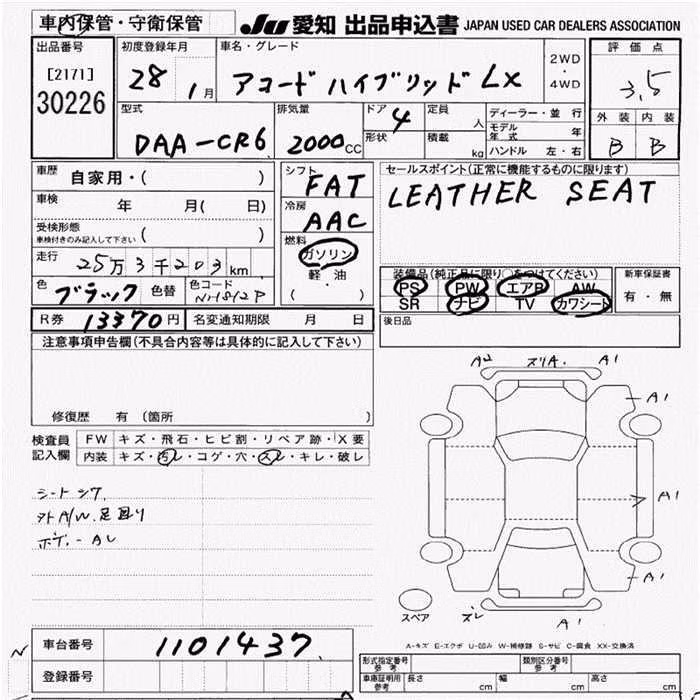 車内保管・守衛保管
JU 愛知 出品申込書 JAPAN USED CAR DEALERS ASSOCIATION
出品番号 [2171] 30226
初度登録年月 28 1月
車名・グレード アコードハイブリッド LX
2WD・4WD
評価点 3.5
外装 内装
B B
型式 DAA-CR6
排気量 2000CC
ドア 4
形状
定員 人
積載 kg
ディーラー・並行
モデル年式 年
ハンドル 左・右
車歴 自家用・( )
車検 年 月( 日)
受検形態 車検付きのみ記入して下さい ( )
走行 25万3千203km
色 ブラック 色替 色コード NH812P
シフト FAT
冷房 AAC
燃料 ガソリン
軽油
( )
セールスポイント(正常に機能するものに限ります)
LEATHER SEAT
装備品(純正品に限り○をつけてください)
PS PW エアB AW
SR ナビ TV カワシート
新車保証書
有・無
R券 13370円 名変通知期限 月 日
後日品
注意事項申告欄(不具合内容等は具体的に記入して下さい)
修復歴 有 (箇所 )
検査員記入欄
FW キズ・飛石・ヒビ割・リペア跡・X要
内装 キズ・汚レ・コゲ・穴・スレ・キレ・破レ
シートシワ
外A/W.足回り
ボデー AU
A2 スリA. A1
A1
A1
A1
スペア ズレ A1
A-キズ E-エクボ U-凹み W-補修跡 S-サビ C-腐食 XX-交換済
N
車台番号 1101437
登録番号
形式指定番号 参考
類別区分番号 参考
車庫証明用 参考 長さ cm 幅 cm 高さ cm